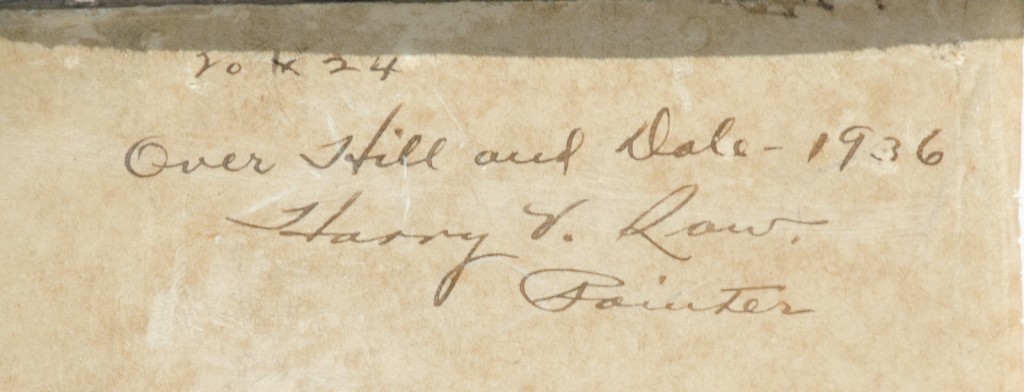 20 x 24
Over Hill and Dale - 1936
Harry V. Raw.
Painter